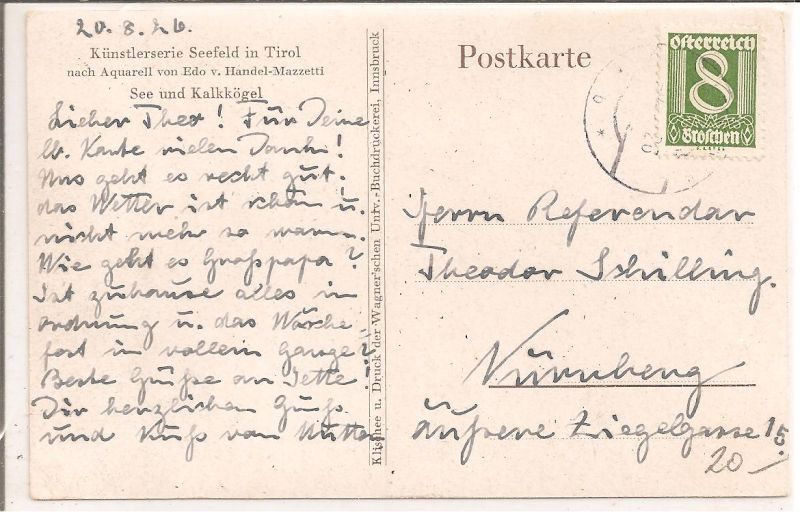 20.8.26.
Künstlerserie Seefeld in Tirol
nach Aquarell von Edo v. Handel-Mazzetti
See und Kalkkögel
Lieber Theo! Für Deine
lb. Karte vielen Dank!
Uns geht es recht gut.
das Wetter ist schön u.
nicht mehr so warm.
Wie geht es Großpapa?
Ist zuhause alles in
ordnung u. das Wäsche
fest in vollem Gange?
Beste Grüße an Jette!
Dir herzlichen Gruß
und Kuß von Mutter
Klischee u. Druck der Wagner'schen Univ.-Buchdruckerei, Innsbruck
Postkarte
Österreich
8
Groschen
Herrn Referendar
Theodor Schilling.
Nürnberg
äußere Ziegelgasse 15.
20